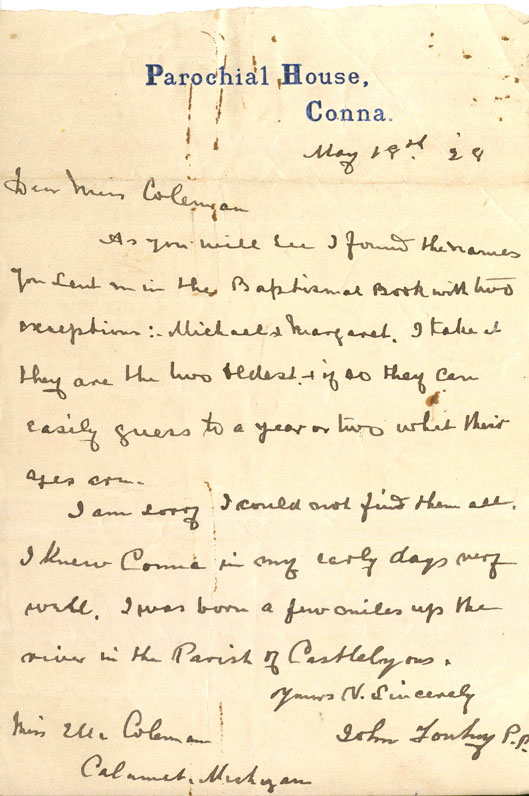 Parochial House,
Conna.
May 19th '28
Dear Miss Coleman
As you will see I found the names
you sent me in the Baptismal Book with two
exceptions:- Michael & Margaret. I take it
they are the two oldest & if so they can
easily guess to a year or two what their
ages are.
I am sorry I could not find them all.
I knew Conna in my early days very
well. I was born a few miles up the
river in the Parish of Castlelyons.
Yours V. Sincerely
John P.P.
Miss Ella Coleman
Calumet, Michigan